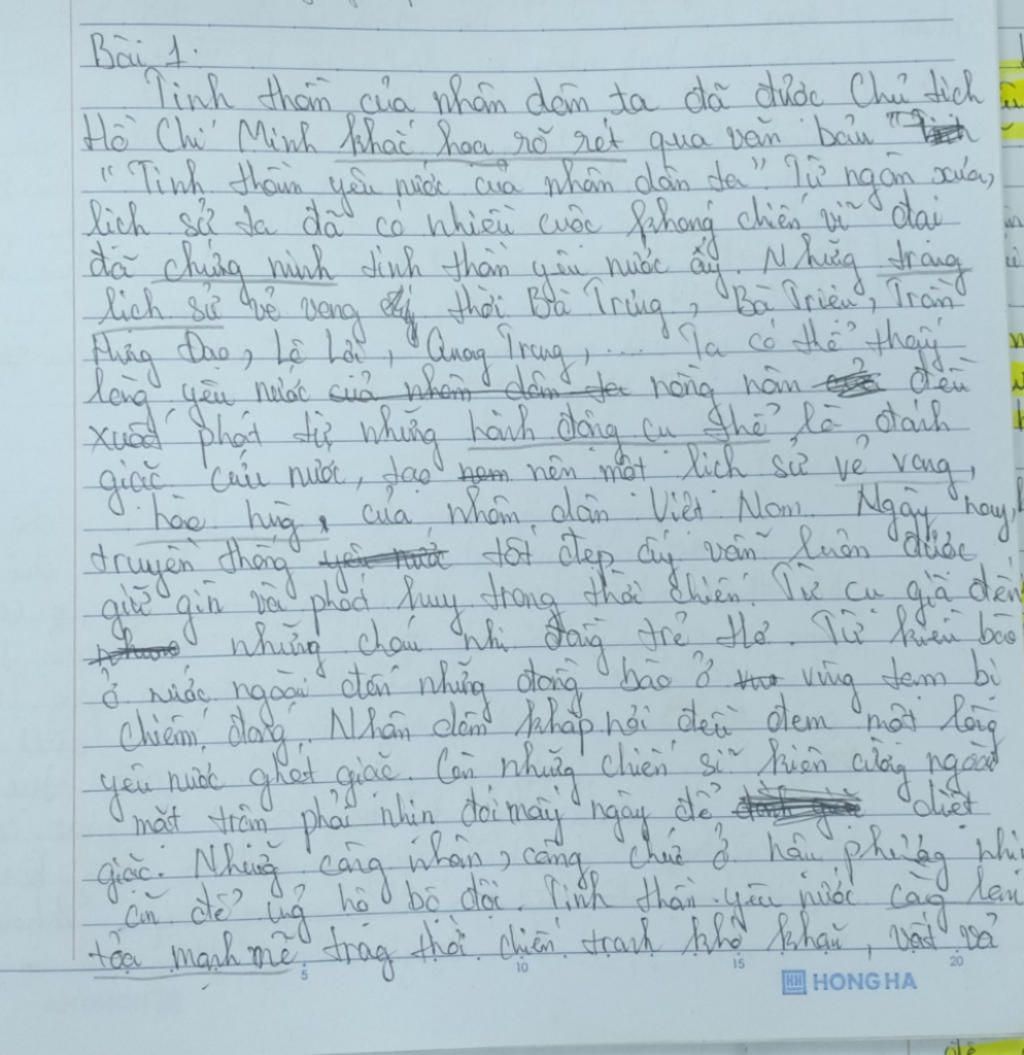 Bài 1:
Tinh thần của nhân dân ta đã được Chủ tịch
Hồ Chí Minh khắc họa rõ rét qua văn bản
"Tinh thần yêu nước của nhân dân ta". Từ ngàn xưa,
lịch sử ta đã có nhiều cuộc kháng chiến vĩ đại
đã chứng minh tinh thần yêu nước ấy. Những trang
lịch sử vẻ vang thời Bà Trưng, Bà Triệu, Trần
Hưng Đạo, Lê Lợi, Quang Trung, .... Ta có thể thấy
lòng yêu nước của nhân dân ta nồng nàn đều
xuất phát từ những hành động cụ thể là đánh
giặc cứu nước, tạo nên một lịch sử vẻ vang,
hào hùng, của nhân dân Việt Nam. Ngày nay,
truyền thống yêu nước tốt đẹp ấy vẫn luôn được
giữ gìn và phát huy trong thời chiến. Từ cụ già đến
những cháu nhi đồng trẻ thơ. Từ kiều bào
ở nước ngoài đến những đồng bào ở vùng tạm bị
chiếm đóng. Nhân dân khắp nơi đều đem một lòng
yêu nước ghét giặc. Còn những chiến sĩ kiên cường ngoài
mặt trận phải nhịn đói mấy ngày để diệt
giặc. Những công nhân, công chức ở hậu phương nhịn
ăn để ủng hộ bộ đội. Tinh thần yêu nước càng lan
tỏa mạnh mẽ trong thời chiến tranh khó khăn, vất vả
5 10 15 20
HONG HA